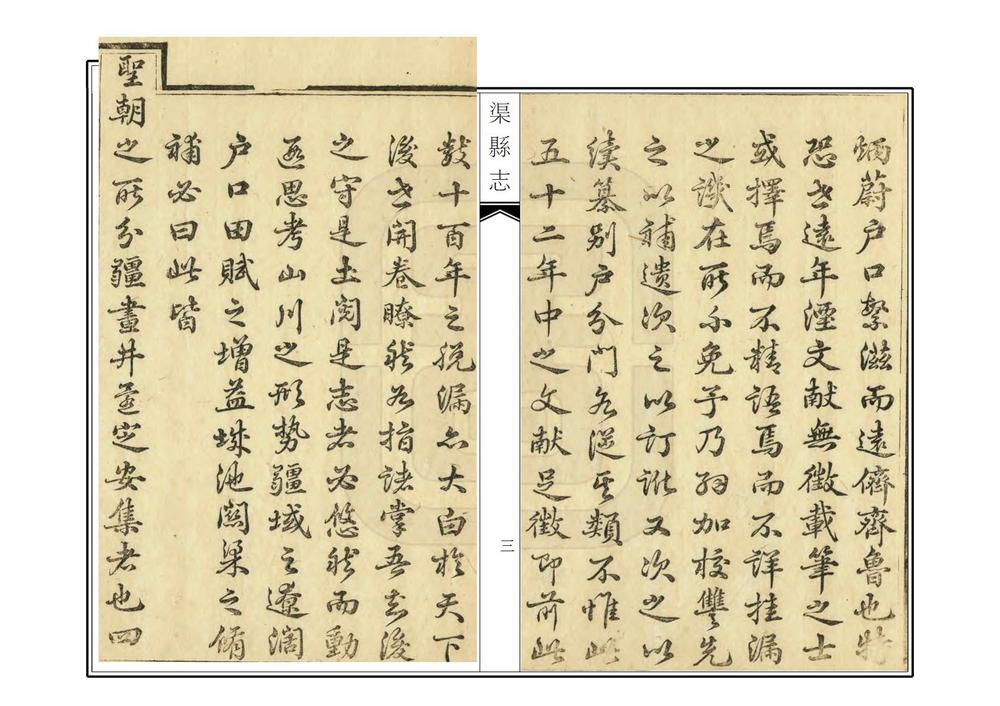 炳蔚户口繁滋而遠儕齊魯也特
恐世遠年湮文献無徵載筆之士
或擇焉而不精語焉而不詳挂漏
之譏在所不免予乃細加校讐先
之以補遺次之以訂訛又次之以
續纂别户分門各從其類不惟此
五十二年中之文献足徵即前此
渠縣志
三
数十百年之脱漏亦大白於天下
後世開卷瞭然如指諸掌吾知後
之守是土閲是志者必悠然而動
遐思考山川之形勢疆域之遼濶
户口田賦之增益城池関梁之脩
補必曰此皆
聖朝之所分疆畫井奠定安集者也四